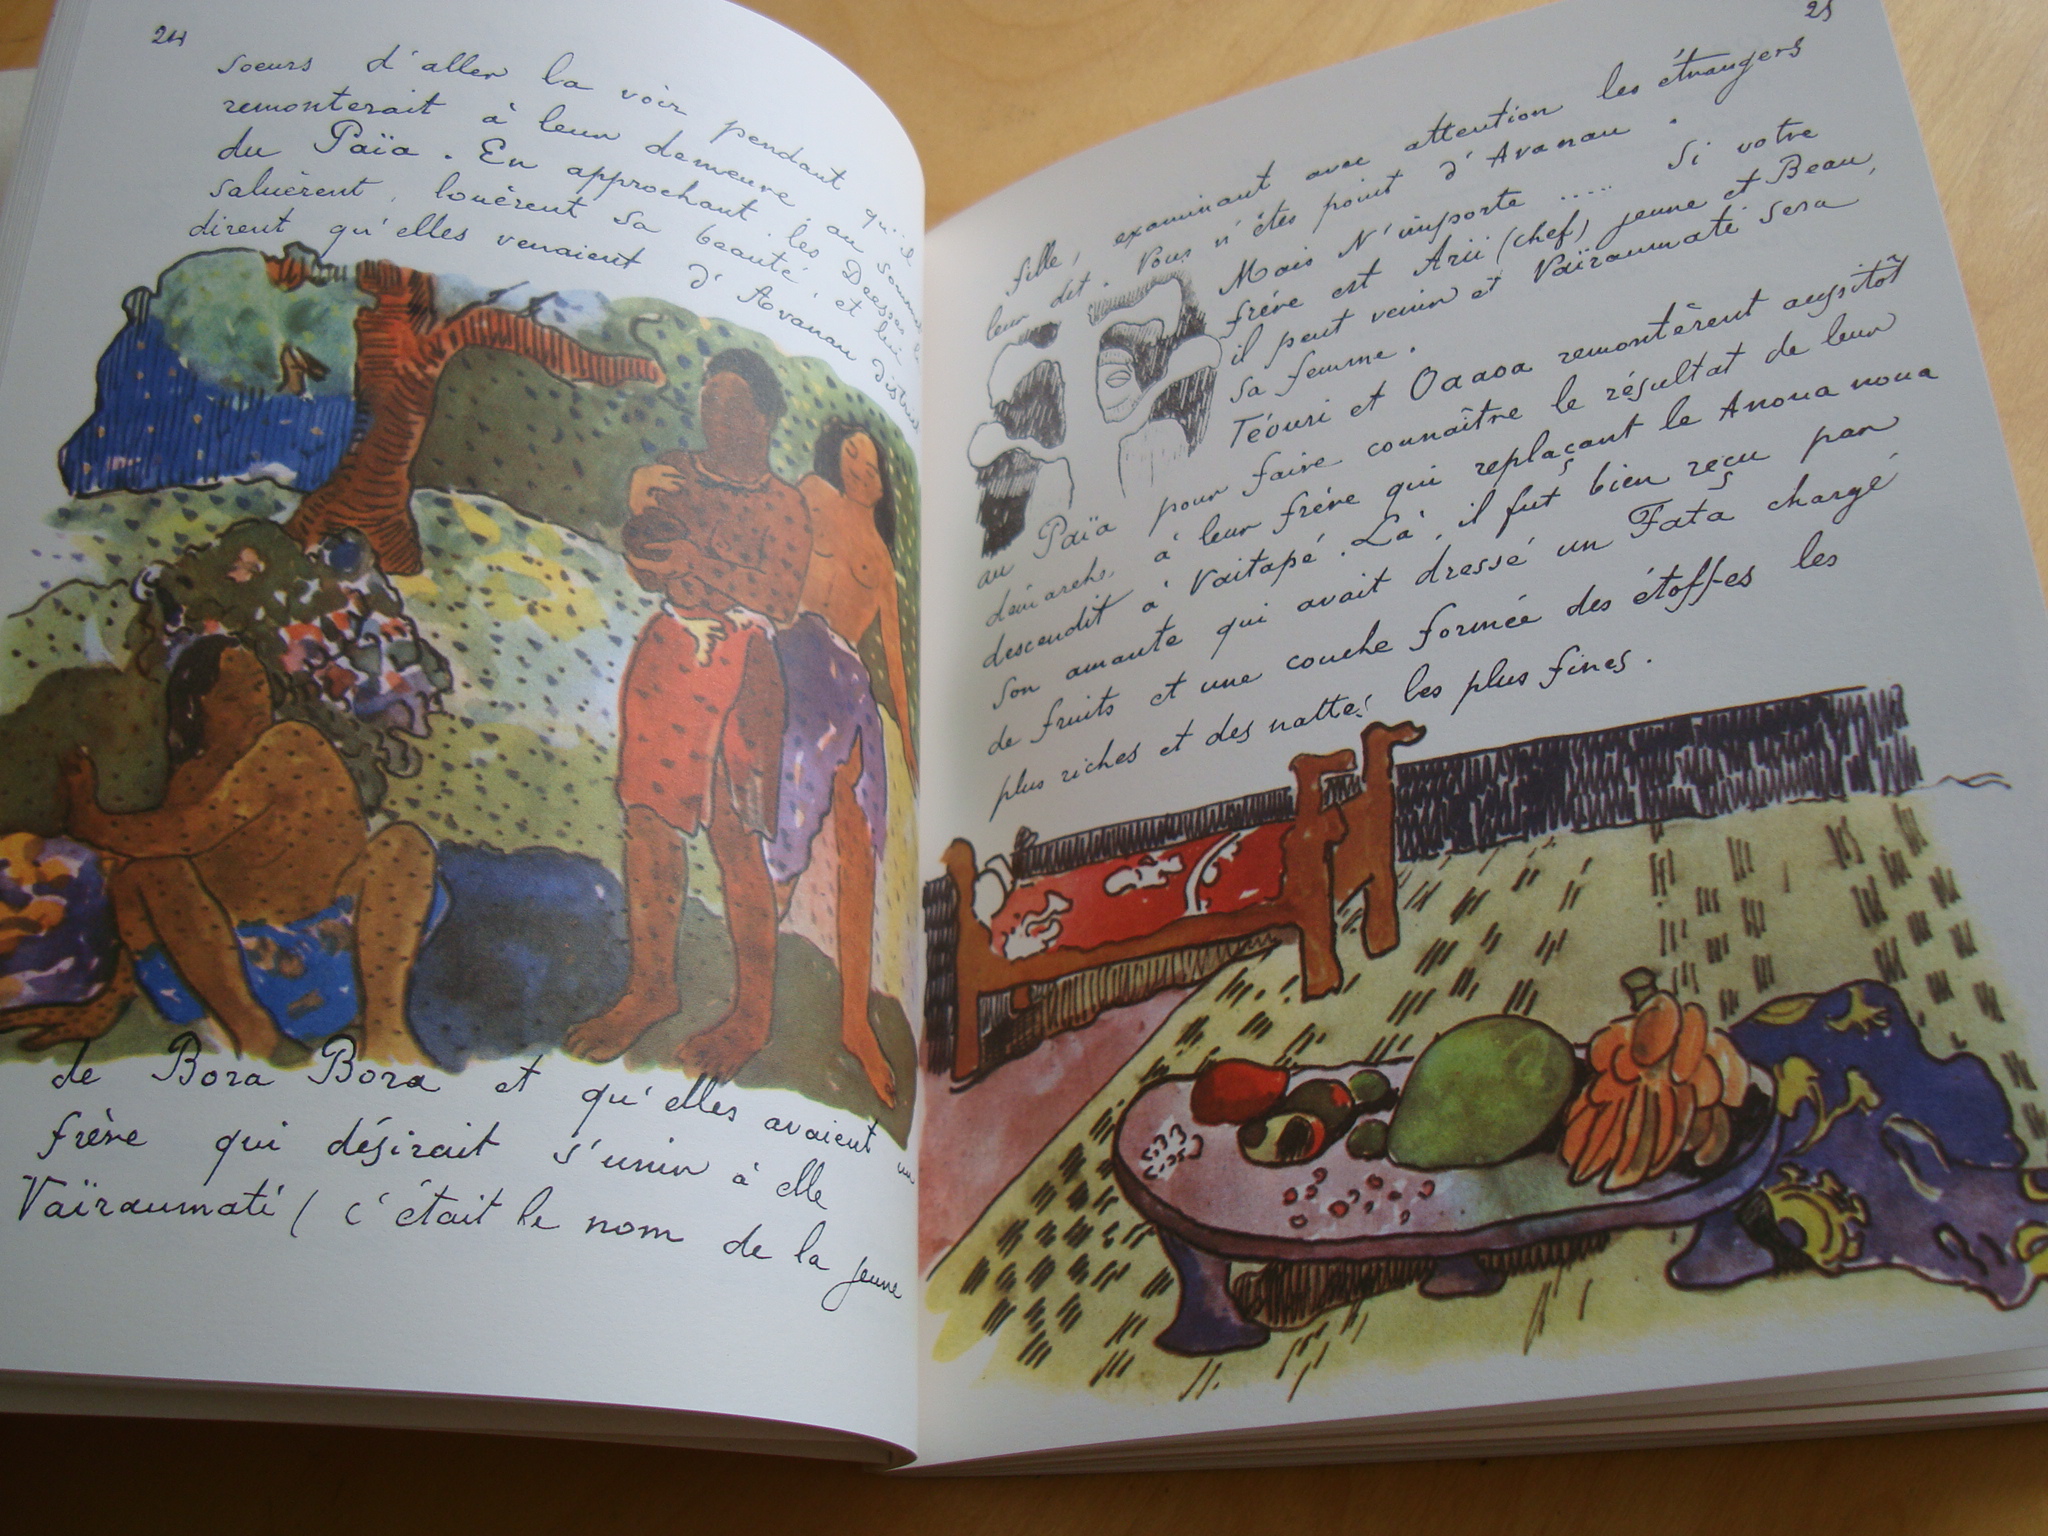 24
soeurs d'aller la voir pendant qu'il
remonterait à leur demeure, au sommet
du Païa. En approchant, les Déesses la
saluèrent, louèrent sa beauté, et lui
dirent qu'elles venaient d'Avanau district
de Bora Bora et qu'elles avaient un
frère qui désirait s'unir à elle
Vaïraumati ( c'était le nom de la jeune
25
fille, examinant avec attention les étrangers
leur dit. Vous n'êtes point d'Avanau.
Mais N'importe ..... Si votre
frère est Arii (chef) jeune et Beau,
il peut venir et Vaïraumati sera
sa femme.
Téouri et Oaaoa remontèrent aussitôt
au Païa pour faire connaître le résultat de leur
démarche, à leur frère qui replaçant le Anoua noua
descendit à Vaitapé. Là, il fut bien reçu par
son amante qui avait dressé un Fata chargé
de fruits et une couche formée des étoffes les
plus riches et des nattes les plus fines.